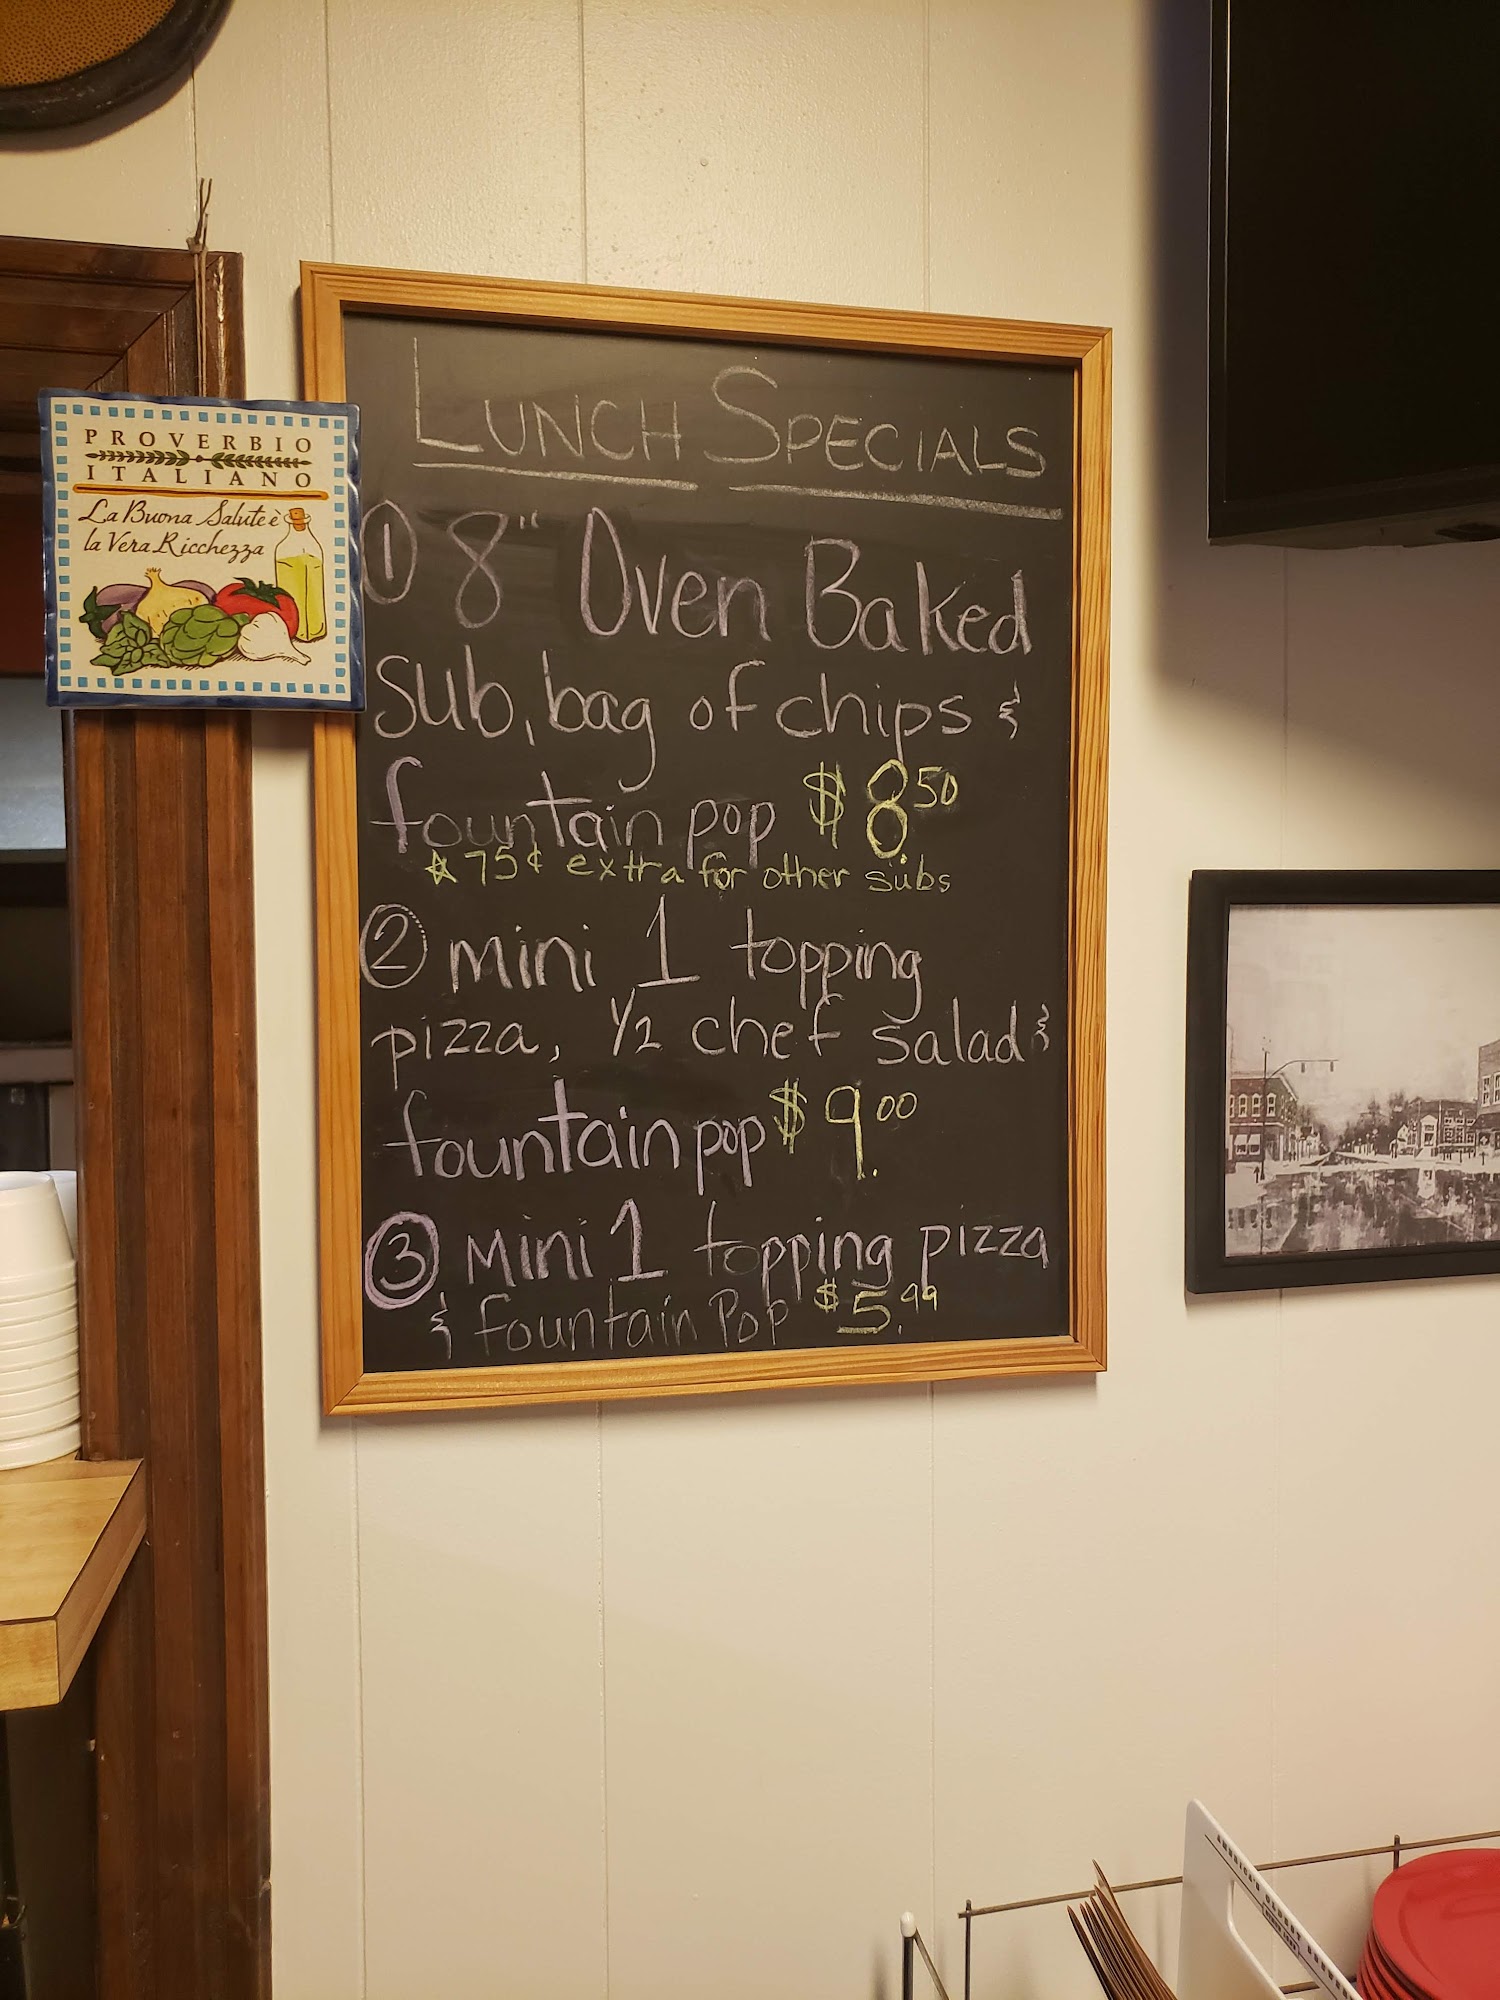 PROVERBIO
ITALIANO
La Buona Salute è
la Vera Ricchezza
LUNCH SPECIALS
① 8" Oven Baked
sub, bag of chips &
fountain pop $8.50
* 75¢ extra for other subs
② mini 1 topping
pizza, 1/2 chef salad &
fountain pop $9.00
③ mini 1 topping pizza
& fountain Pop $5.99
AMERICA'S OLDEST